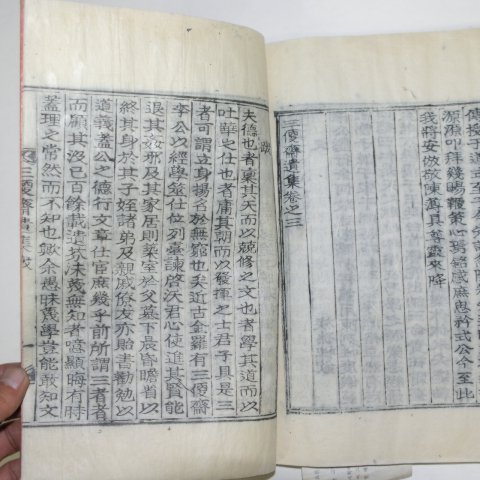 源源叩拜幾賜鞭策心弼銘感庶思矜式公今至此
我將安倣敬陳菲具尊靈來降
三優齋遺集卷之三
跋
夫德也者稟其天而以兢修之文也者學其道而以
吐華之仕也者庸其朝而以發揮之士君子具是三
者可謂立身揚名於無窮也矣近古金羅有三優齋
李公以經學筮仕位列臺諫啓沃君心使進其賢能
退其姦邪及其家居則築室於父墓下晨昏瞻省以
終其身於其子姪諸弟及親戚僚友亦貽書勸勉以
道義蓋公之德行文章仕宦庶幾乎前所謂三者者
而顧其沒已百餘載遺坎沫蔑無知者噫顯晦有時
蓋理之常然而不知也歟余愚昧蔑學豈能敢知文
三優齋遺集跋
一